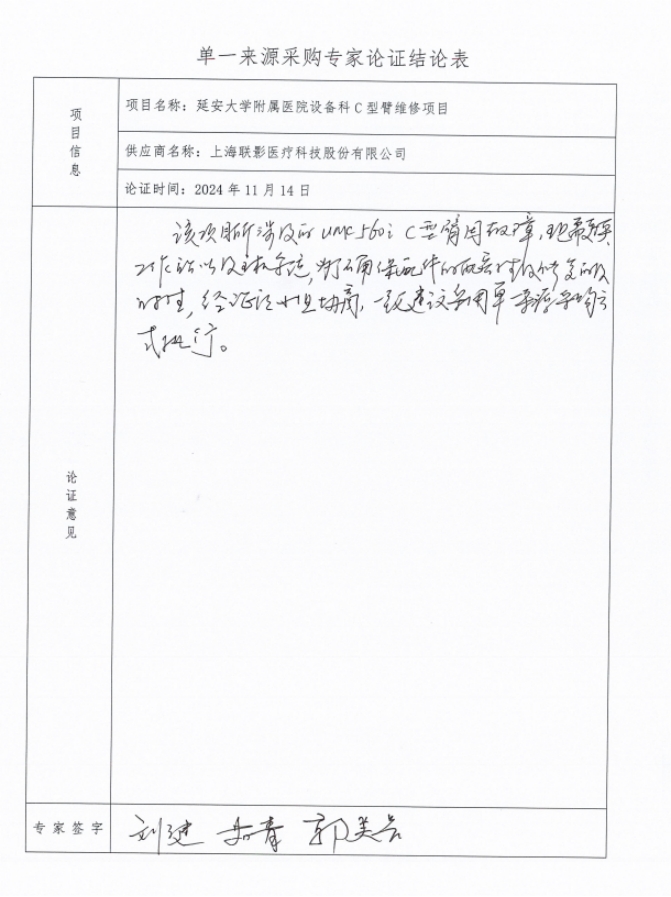 单一来源采购专家论证结论表
项目信息
项目名称：延安大学附属医院设备科C型臂维修项目
供应商名称：上海联影医疗科技股份有限公司
论证时间：2024年11月14日
论证意见
该项目所涉及的 umc 560i C型臂因故障，现需更换
工作站以及主机系统，为了确保配件的匹配性及修复的及
时性，经论证小组协商，一致建议采用单一来源采购方
式执行。
专家签字
刘建 青 郭美